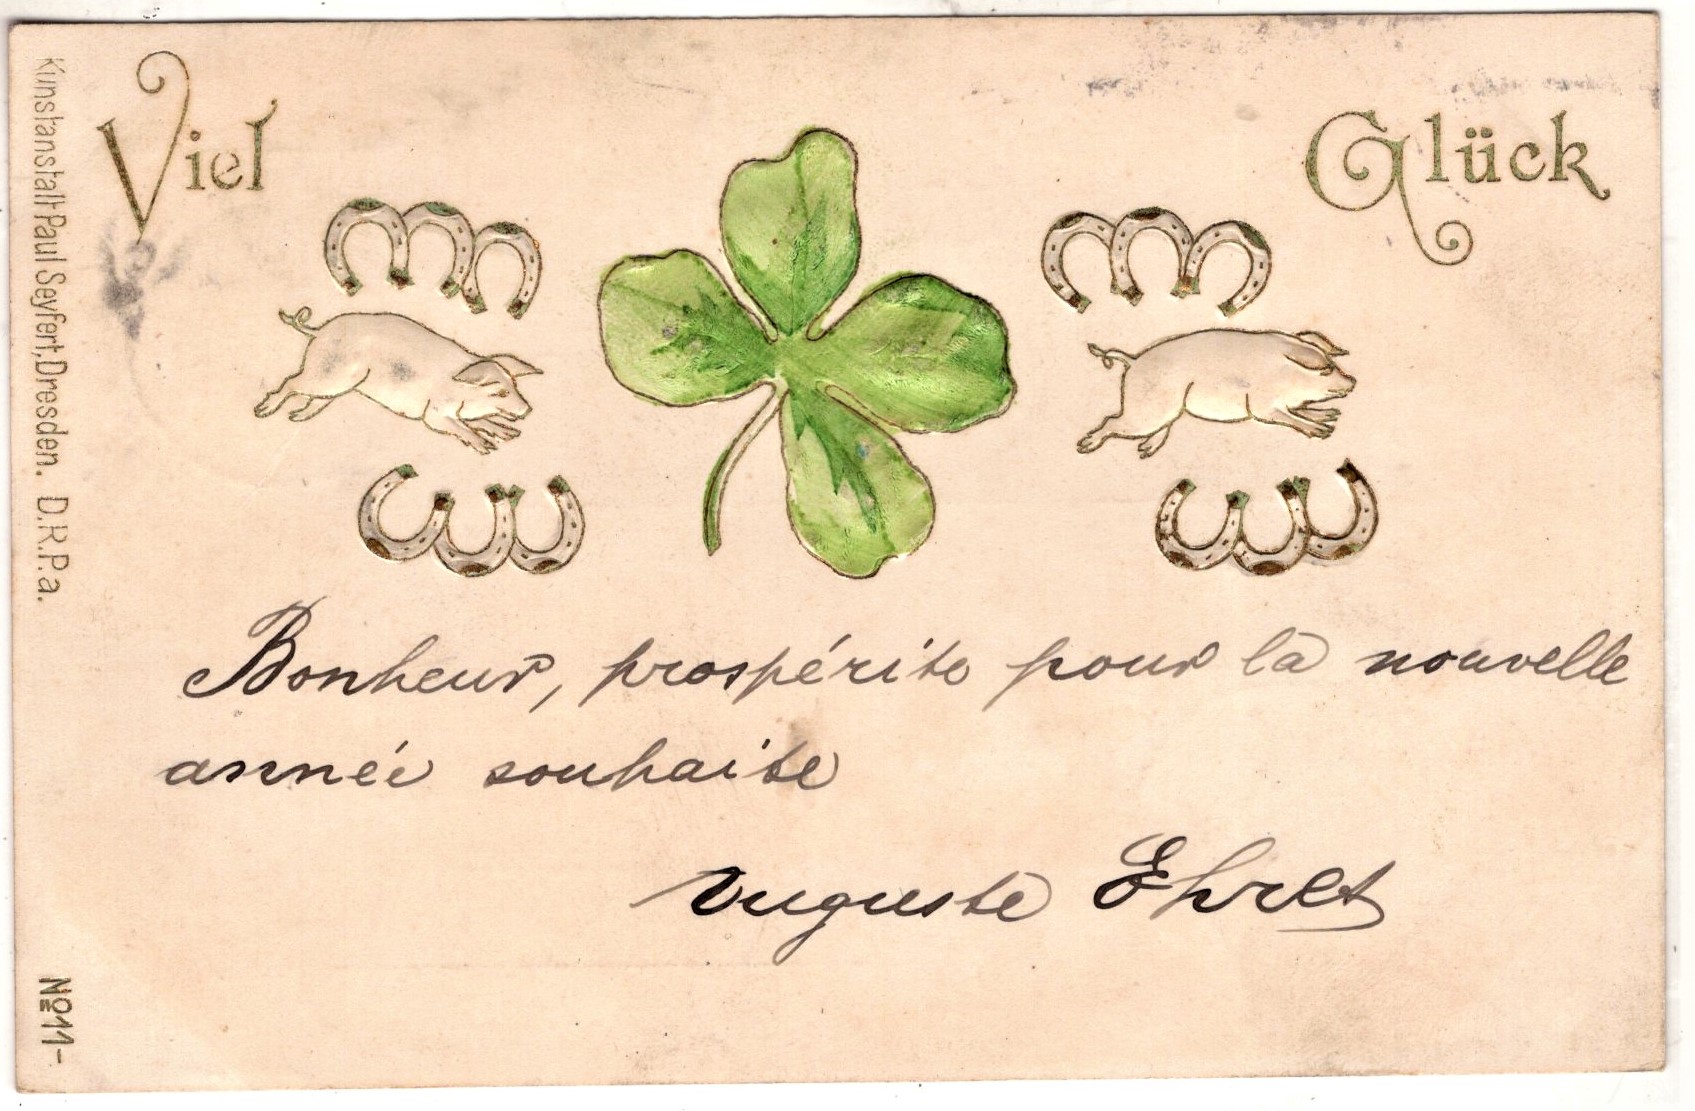 Viel Glück
Kunstanstalt Paul Seyfert, Dresden. D.R.P.a.
Bonheur, prospérité pour la nouvelle
année souhaite
Auguste Ehret
No 11-